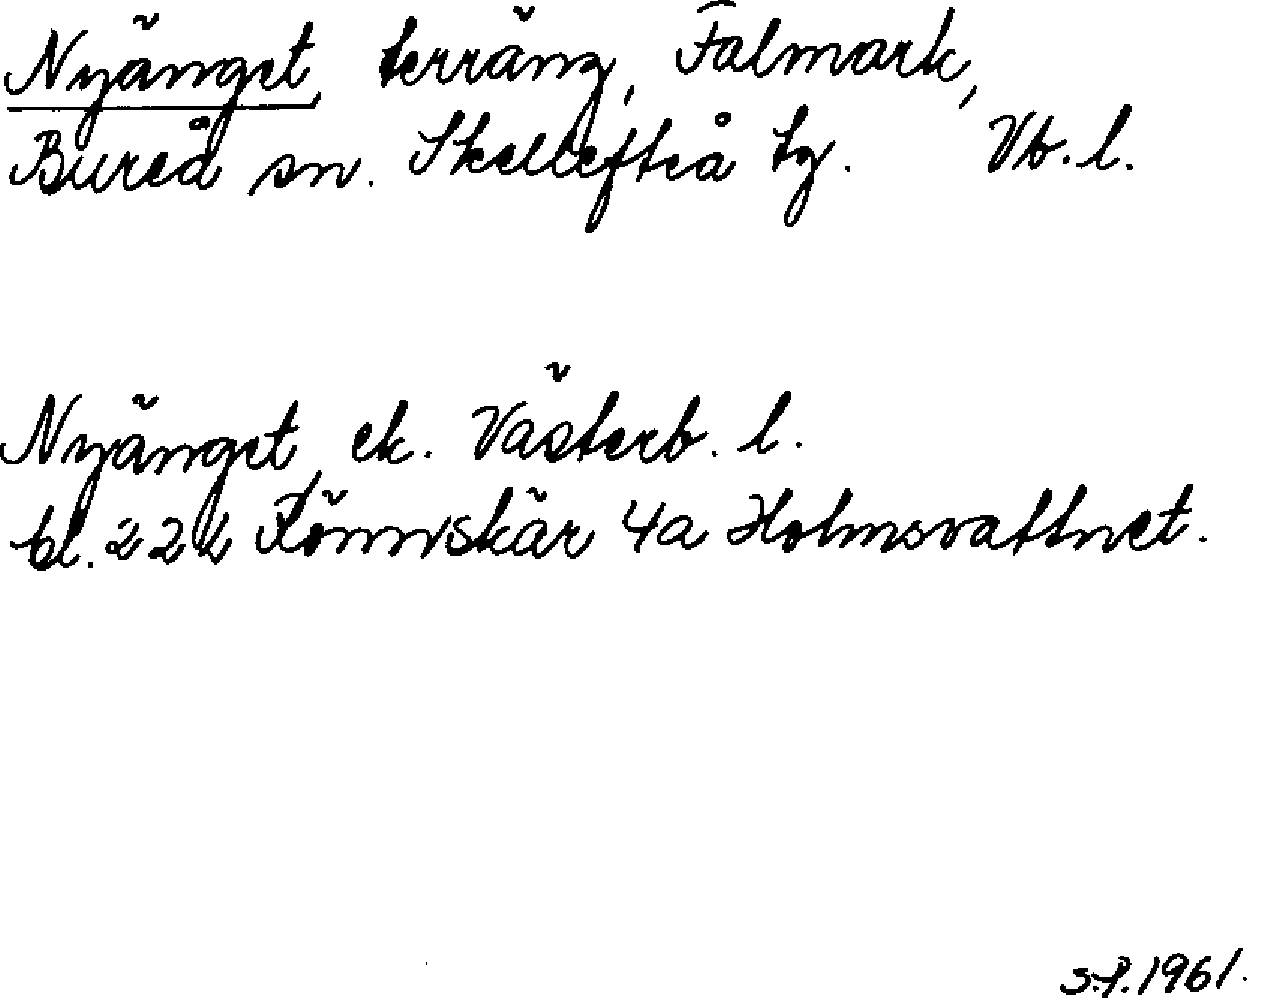 Nyänget, terräng, Falmark,
Bureå sn. Skellefteå tg. Vb. l.
Nyänget, ek. Västerb. l.
bl. 222 Rönnskär 4a Holmsvattnet.
S.P. 1961.